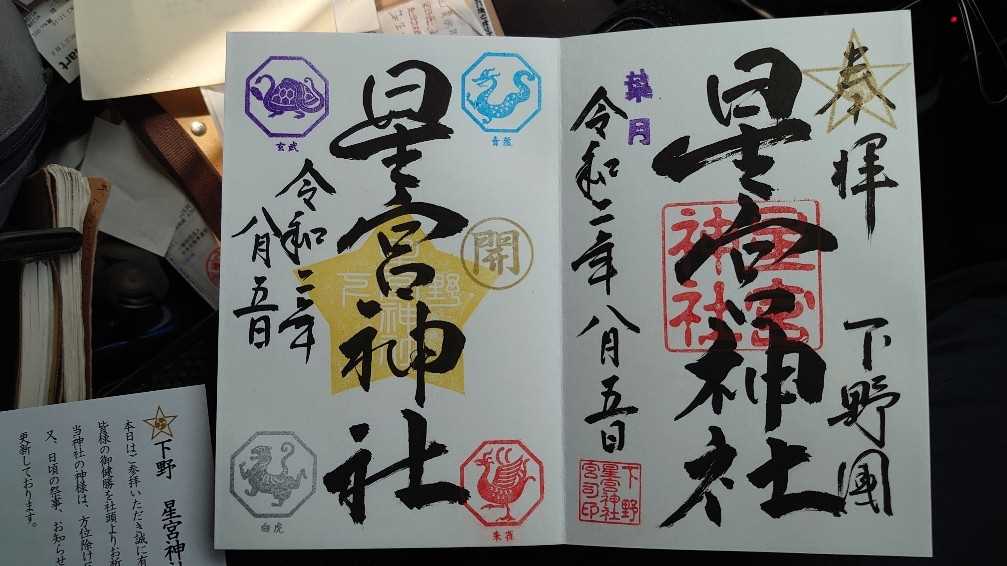 奉拝
下野國
星宮神社
星宮神社
葉月
令和二年八月五日
下野
星宮神社
宮司印
青龍
朱雀
開
星宮神社
玄武
白虎
令和二年
八月五日
下野 星宮神社
本日はご参拝いただき誠に有
皆様の御健勝を社頭よりお祈
当神社の神様は、方位除け
又、日頃の祭事、お知らせ
更新しております。